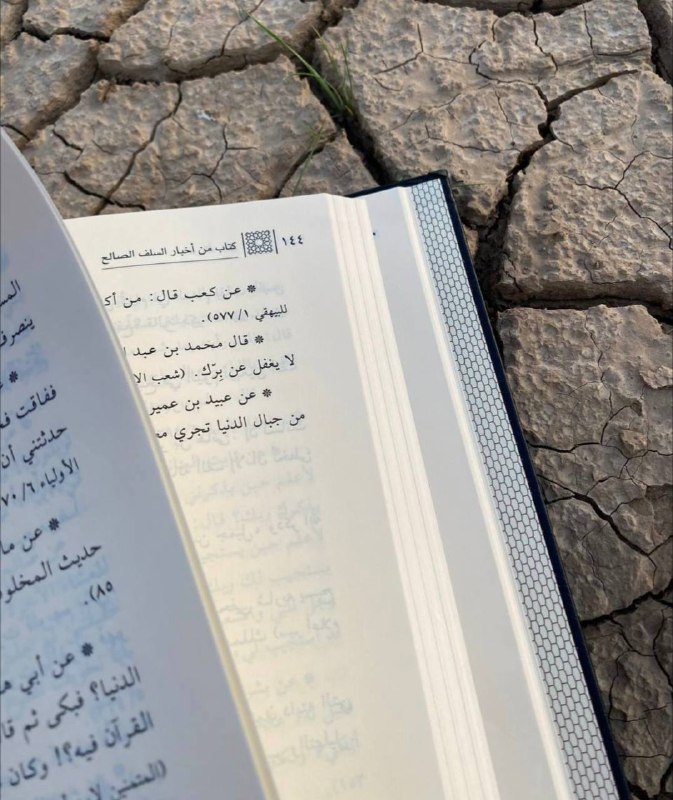 ١٤٤ كتاب من أخبار السلف الصالح
* عن كعب قال: من أك
للبيهقي ٥٧٧/١).
* قال محمد بن عبد ا
لا يغفل عن بِرّك. (شعب الا
* عن عبيد بن عمير
من جبال الدنيا تجري مع
المس
ينصرف
ففاقت فم
حدثتني أن
الأولياء ٧٠/٦
* عن ما
حديث المخلو
٨٥).
* عن أبي ه
الدنيا؟ فبكى ثم قا
القرآن فيه؟! وكان
(المتمنين لا